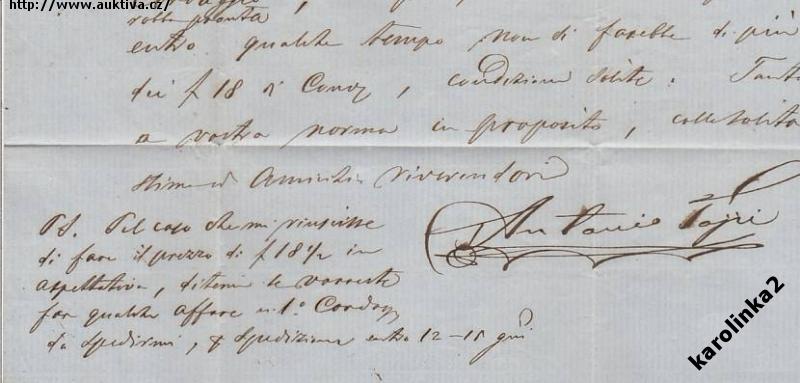 http://www.auktiva.cz/
volta pronta
entro qualche tempo non di farebbe di più
dei f 18 di Conv, condizioni solite. Tanto
a vostra norma in proposito, colla solita
stima ed Amicizia riverendovi
Antonio
PS. Nel caso che mi riuscisse
di fare il prezzo di f 18 1/2 in
aspettativa, ditemi se vorreste
far qualche affare
da spedirmi, & spedizione entro 12-15 gni
karolinka2